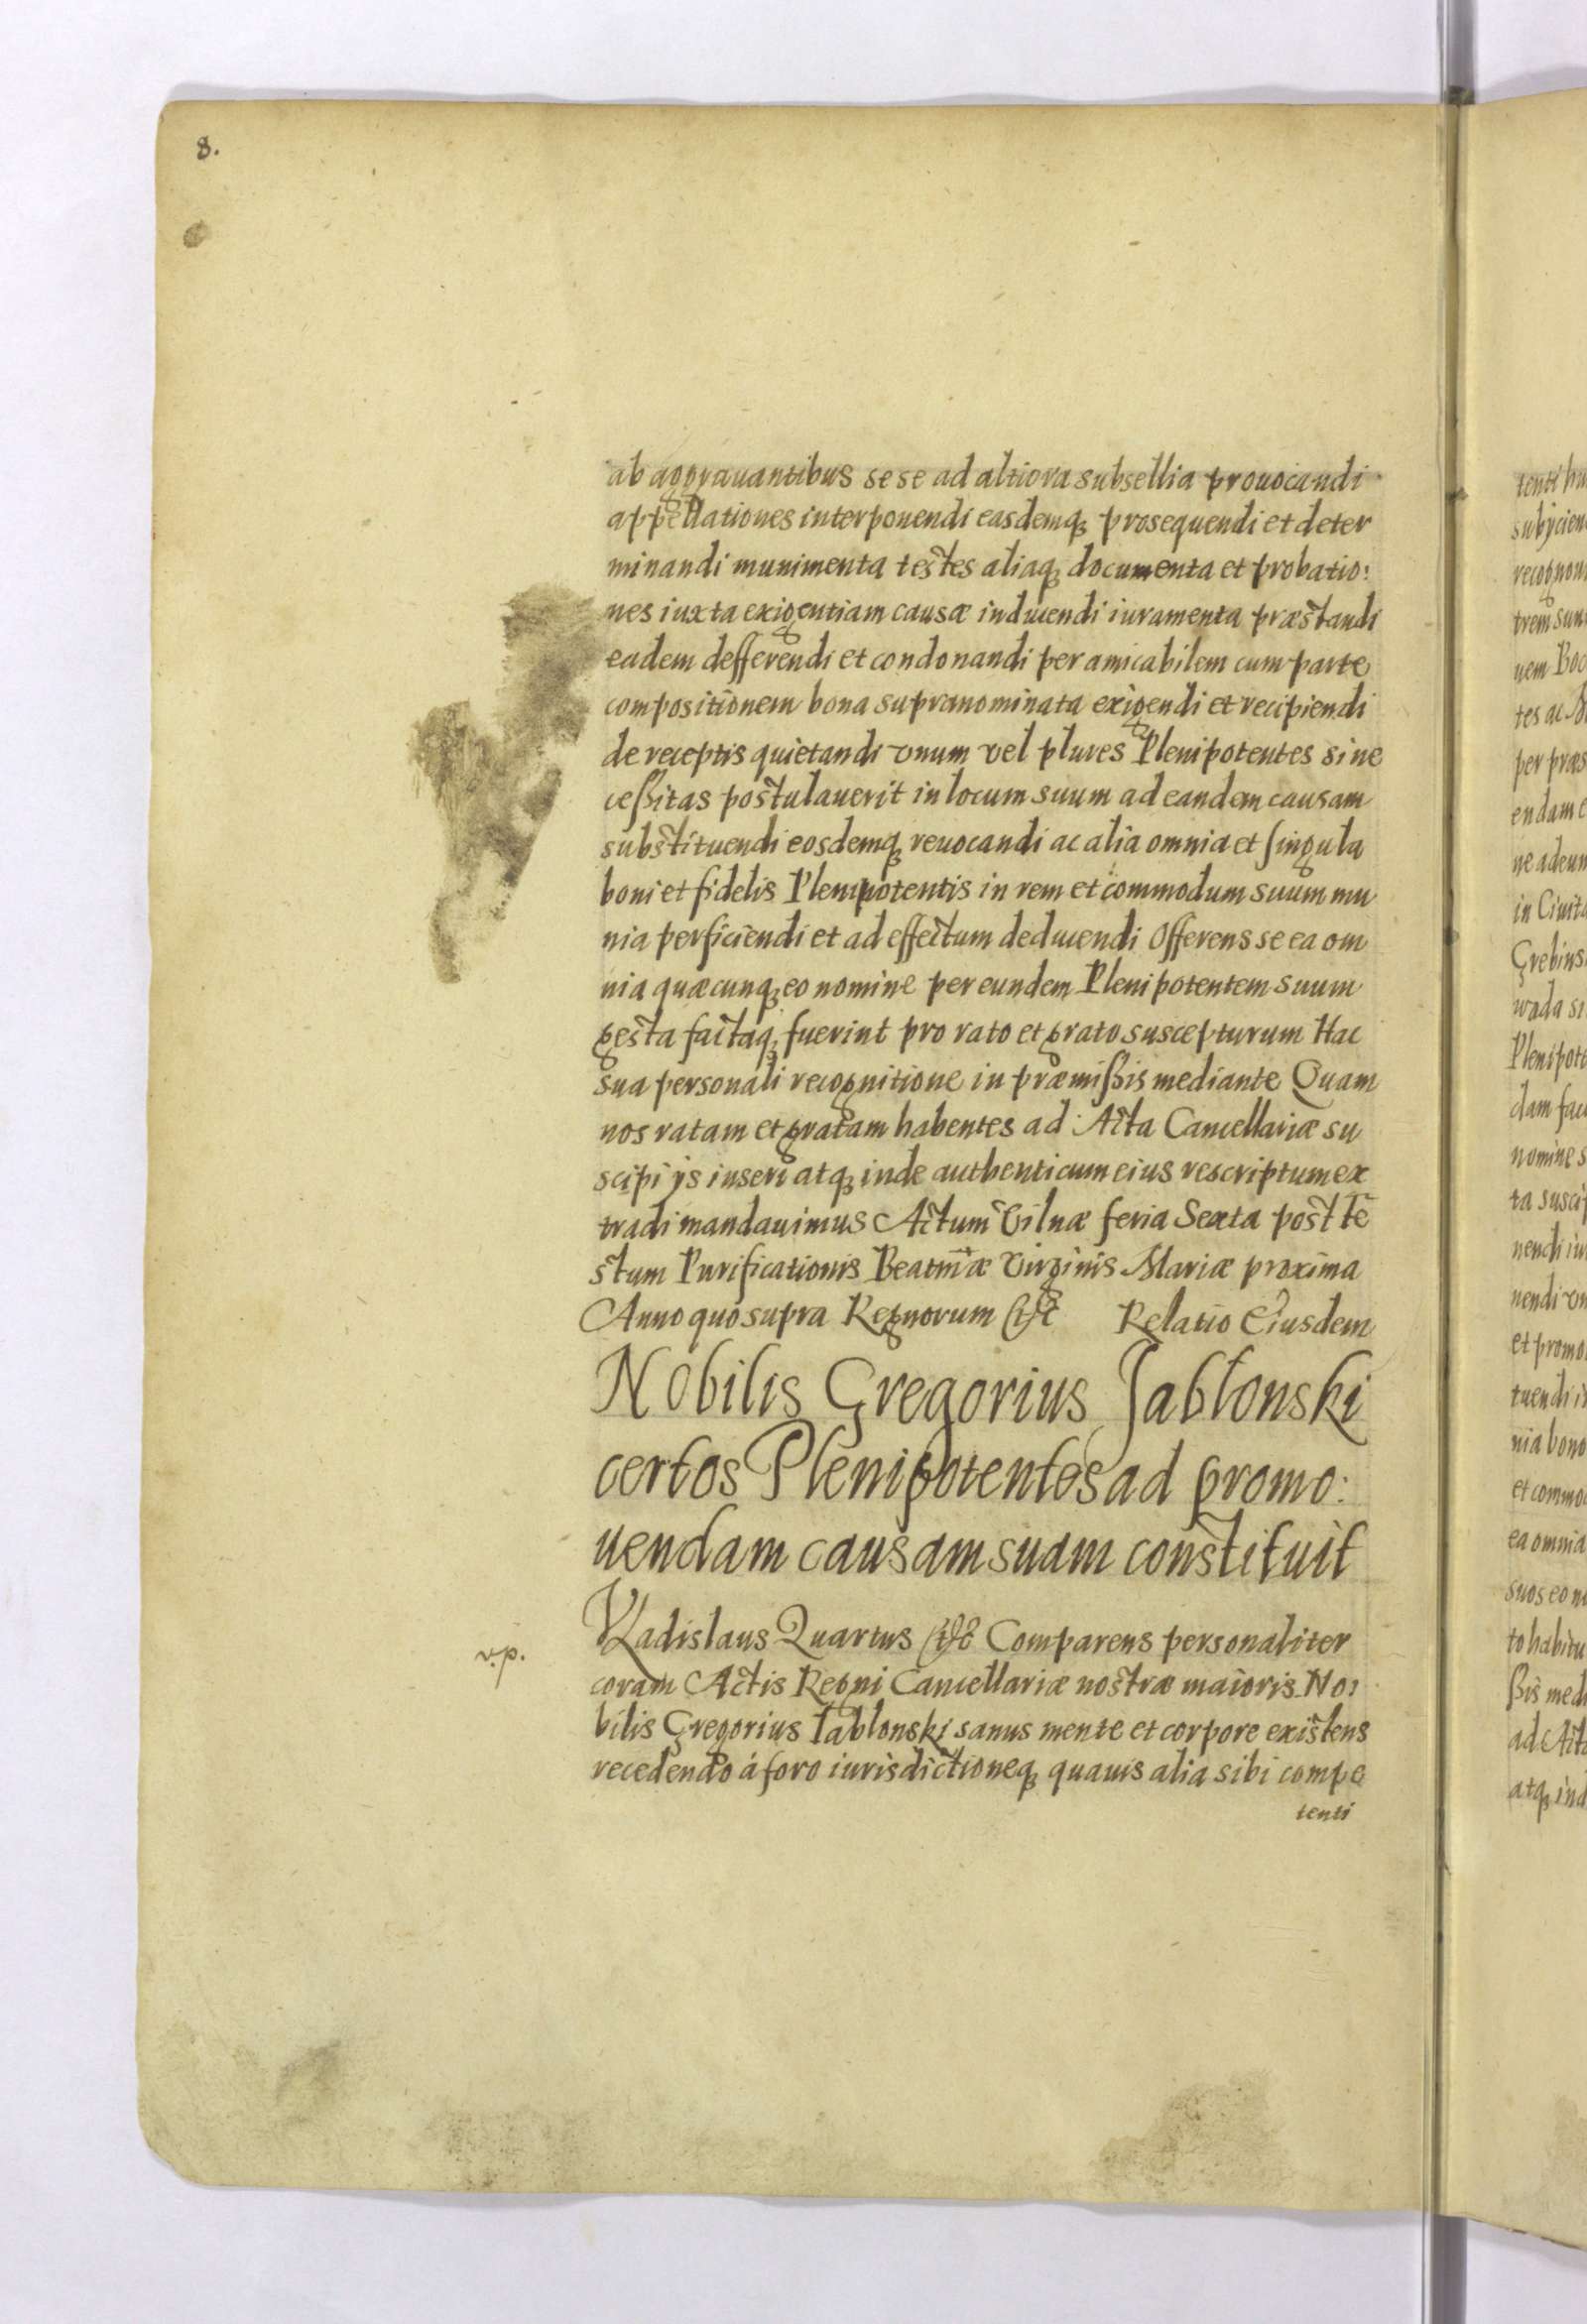 8.
ab aggrauantibus sese ad altiora subsellia prouocandi
appellationes interponendi easdemq; prosequendi et deter
minandi munimenta testes aliaq; documenta et probatio:
nes iuxta exigentiam causæ inducendi iuramenta præstandi
eadem defferendi et condonandi per amicabilem cum parte
compositionem bona supranominata exigendi et recipiendi
de receptis quietandi vnum vel plures Plenipotentes si ne
ceßitas postulauerit in locum suum ad eandem causam
substituendi eosdemq; reuocandi ac alia omnia et singula
boni et fidelis Plenipotentis in rem et commodum suum mu
nia perficiendi et ad effectum deducendi Offerens se ea om
nia quæcunq; eo nomine per eundem Plenipotentem suum
gesta factaq; fuerint pro rato et grato suscepturum Hac
sua personali recognitione in præmißis mediante Quam
nos ratam et gratam habentes ad Acta Cancellariæ su
scipi ijs inseri atq; inde authenticum eius rescriptum ex
tradi mandauimus Actum Vilnæ feria Sexta post Fe
stum Purificationis Beatmæ Virginis Mariæ proxima
Anno quo supra Regnorum &c Relatio Eiusdem
Nobilis Gregorius Jablonski
certos Plenipotentes ad promo:
uendam causam suam constituit
v.p.
Vladislaus Quartus &c Comparens personaliter
coram Actis Regni Cancellariæ nostræ maioris No:
bilis Gregorius Iablonski sanus mente et corpore existens
recedendo á foro iurisdictioneq; quauis alia sibi compe
tenti